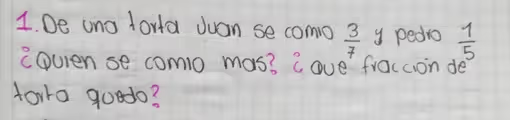 1. De una torta Juan se comio 3/7 y pedro 1/5
¿Quien se comio mas? ¿que fracción de
torta quedo?